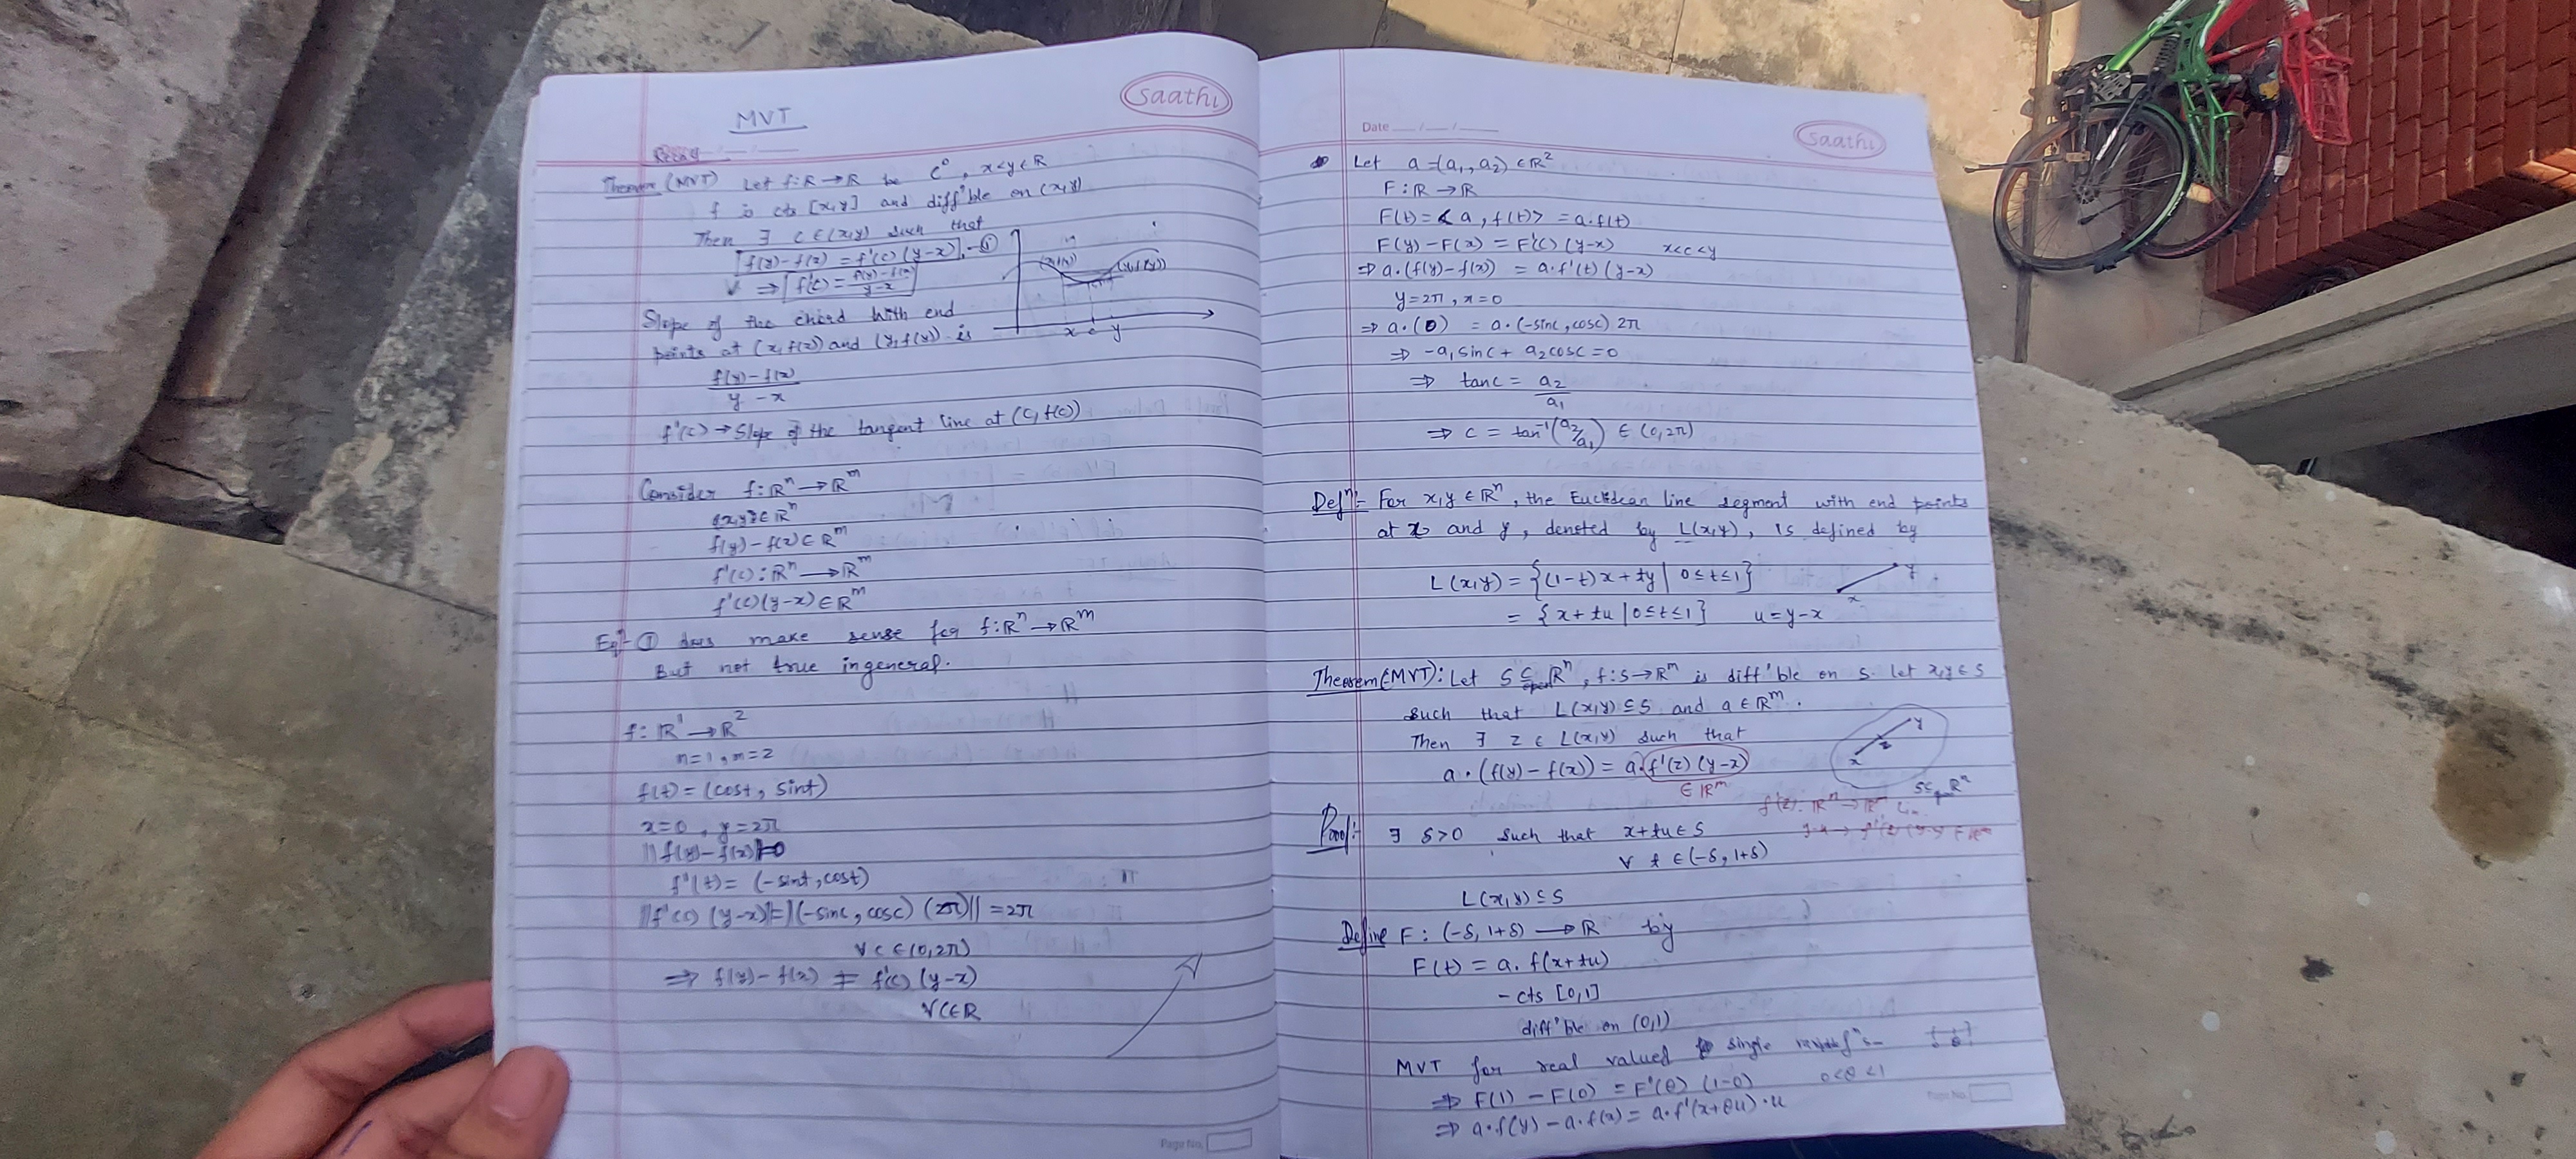 Saathi
MVT
Theorem (MVT) Let f: R → R be C⁰, x<y ∈ R
f is cts [x,y] and diff'ble on (x,y)
Then ∃ c ∈ (x,y) such that
f(y) - f(x) = f'(c) (y-x) -①
⇒ f'(c) = f(y)-f(x) / y-x
Slope of the chord with end
points at (x, f(x)) and (y, f(y)) is
f(y) - f(x) / y - x
x c y
f'(c) → Slope of the tangent line at (c, f(c))
Consider f: Rⁿ → Rᵐ
x,y ∈ Rⁿ
f(y) - f(x) ∈ Rᵐ
f'(c): Rⁿ → Rᵐ
f'(c)(y-x) ∈ Rᵐ
Eqⁿ ① does make sense for f: Rⁿ → Rᵐ
But not true in general.
f: R¹ → R²
n=1, m=2
f(t) = (cost, sint)
x=0, y=2π
||f(y) - f(x)||=0
f'(t) = (-sint, cost)
||f'(c) (y-x)||=||(-sinc, cosc) (2π)|| = 2π
∀ c ∈ (0, 2π)
⇒ f(y) - f(x) ≠ f'(c) (y-x)
∀ c ∈ R
Page No.
Date
Saathi
Let a = (a₁, a₂) ∈ R²
F: R → R
F(t) = < a, f(t)> = a.f(t)
F(y) - F(x) = F'(c) (y-x) x<c<y
⇒ a.(f(y) - f(x)) = a.f'(t) (y-x)
y=2π, x=0
⇒ a.(0) = a.(-sinc, cosc) 2π
⇒ -a₁ sinc + a₂ cosc = 0
⇒ tanc = a₂/a₁
⇒ c = tan⁻¹(a₂/a₁) ∈ (0, 2π)
Defⁿ:- For x,y ∈ Rⁿ, the Euclidean line segment with end points
at x and y, denoted by L(x,y), is defined by
L(x,y) = {(1-t)x + ty | 0≤t≤1}
= {x + tu | 0≤t≤1} u = y-x
x y
Theorem (MVT): Let S ⊆ Rⁿ, f: S → Rᵐ is diff'ble on S. let x,y ∈ S
open
such that L(x,y) ⊆ S and a ∈ Rᵐ.
Then ∃ z ∈ L(x,y) such that
a.(f(y) - f(x)) = a.f'(z)(y-x)
∈ Rᵐ
x z y
Proof: ∃ δ>0 such that x+tu ∈ S
∀ t ∈ (-δ, 1+δ)
L(x,y) ⊆ S
Define F: (-δ, 1+δ) → R by
F(t) = a.f(x+tu)
- cts [0,1]
diff'ble on (0,1)
MVT for real valued single
⇒ F(1) - F(0) = F'(θ) (1-0) 0<θ<1
⇒ a.f(y) - a.f(x) = a.f'(x+θu).u
Page No.